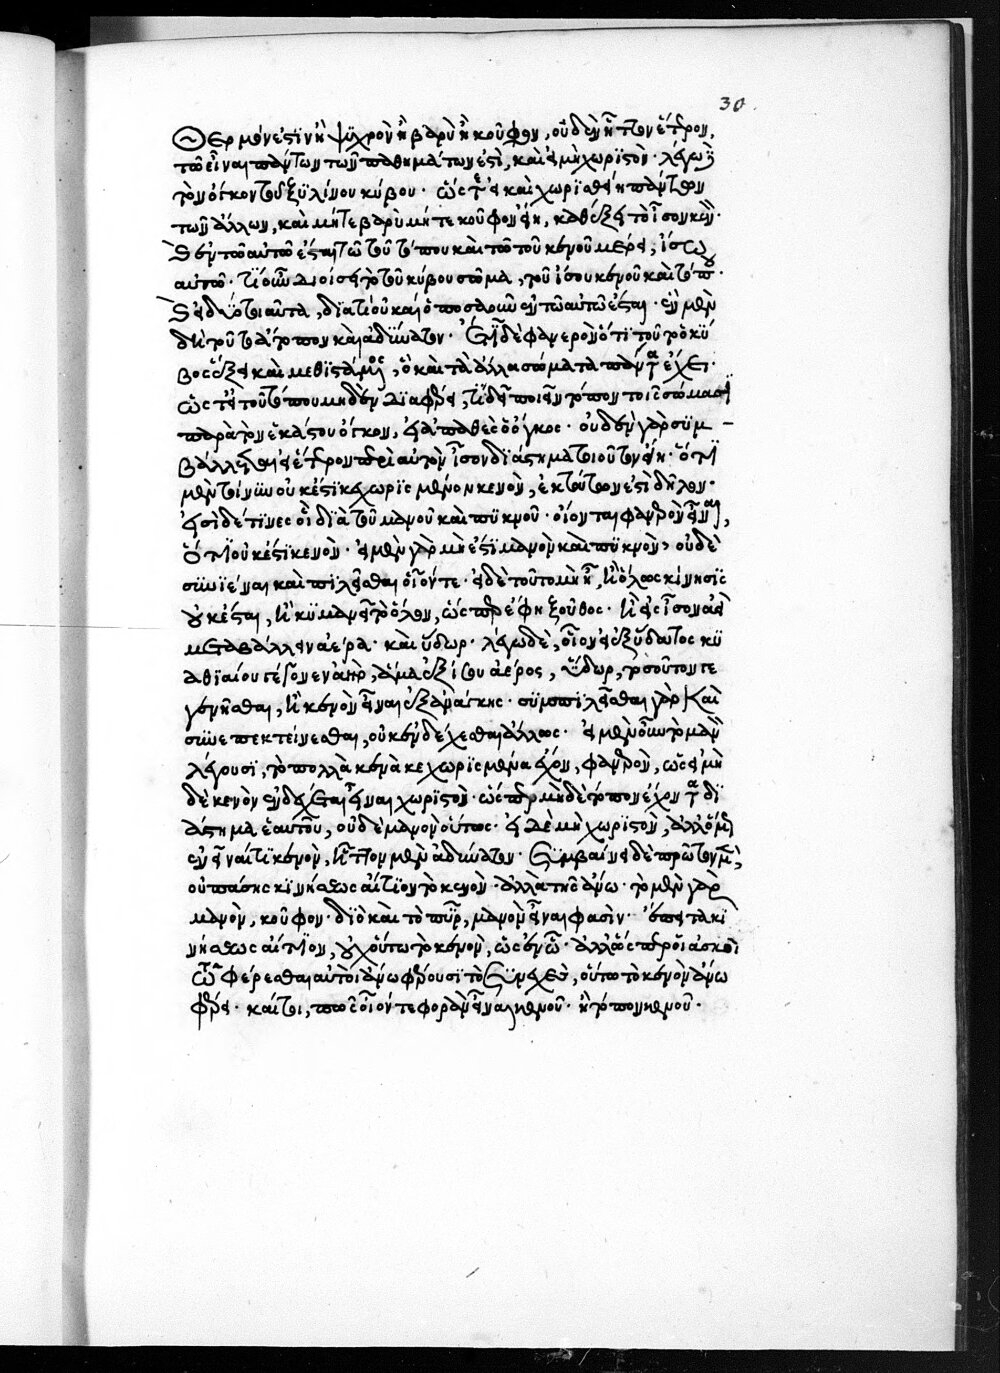 Θερμόν ἐστιν ἢ ψυχρὸν ἢ βαρὺ ἢ κοῦφον, οὐδὲν ἧττον ἕτερον,
τῶ εἶναι πάντων τῶν παθημάτων ἐστὶ, καὶ εἰ μὴ χωριστόν· λέγω δὲ
τὸν ὄγκον τοῦ ξυλίνου κύβου· ὥστ' εἰ καὶ χωρισθείη πάντων
τῶν ἄλλων, καὶ μήτε βαρὺ μήτε κοῦφον εἴη, καθέξει τὸ ἴσον κενὸν·
καὶ ἐν τῶ αὐτῶ ἔσται τῶ τοῦ τόπου καὶ τῶ τοῦ κενοῦ μέρει, ἴσω
αὐτῶ· τί οὖν διοίσει τὸ τοῦ κύβου σῶμα, τοῦ ἴσου κενοῦ καὶ τόπου·
καὶ εἰ δύο τοιαῦτα, διατί οὐ καὶ ὁποσαοῦν ἐν τῶ αὐτῶ ἔσται· ἓν μὲν
δὴ τοῦτο ἄτοπον καὶ ἀδύνατον· Ἔτι δὲ φανερὸν ὅτι τοῦτο ὁ κύ
βος ἕξει καὶ μεθιστάμενος, ὃ καὶ τὰ ἄλλα σώματα πάντα ἔχει·
ὥστ' εἰ τοῦ τόπου μηδὲν διαφέρει, τί δεῖ ποιεῖν τόπον τοῖς σώμασι
παρὰ τὸν ἑκάστου ὄγκον, εἰ ἀπαθὲς ὁ ὄγκος· οὐδὲν γὰρ συμ-
βάλλεται εἰ ἕτερον περὶ αὐτὸν ἴσον διάστημα τοιοῦτον εἴη· ὅτι
μὲν τοίνυν οὐκ ἔστι κεχωρισμένον κενὸν, ἐκ τούτων ἐστὶ δῆλον·
εἰσὶ δέ τινες οἳ διὰ τοῦ μανοῦ καὶ πυκνοῦ· οἴονται φανερὸν εἶναι,
ὅτι οὐκ ἔστι κενὸν· εἰ μὲν γὰρ μὴ ἐστὶ μανὸν καὶ πυκνὸν, οὐδὲ
συνιέναι καὶ πιλεῖσθαι οἷόν τε· εἰ δὲ τοῦτο μὴ ἦ, ἢ ὅλως κίνησις
οὐκ ἔσται, ἢ κυμανεῖ τὸ ὅλον, ὥσπερ ἔφη ξοῦθος· ἢ εἰς ἴσον ἀεὶ
μεταβάλλειν ἀέρα· καὶ ὕδωρ· λέγω δὲ, οἷον εἰ ἐξ ὕδατος κυ
άθου γέγονεν ἀὴρ, ἅμα ἐξ ἴσου ἀέρος, ὕδωρ, τοσοῦτον τε
γενῆσθαι, ἢ κενὸν εἶναι ἐξ ἀνάγκης· συμπιλεῖσθαι γὰρ καὶ
συνεπεκτείνεσθαι, οὐκ ἐνδέχεται ἄλλως· εἰ μὲν οὖν τὸ μανὸν
λέγουσι, τὸ πολλὰ κενὰ κεχωρισμένα ἔχον, φανερὸν, ὡς εἰ μη
δὲ κενὸν ἐνδέχεται εἶναι χωριστὸν· ὥσπερ μηδὲ τόπον ἔχοντα δι
άστημα ἑαυτοῦ, οὐδὲ μανὸν οὕτως· εἰ δὲ μὴ χωριστὸν, ἀλλ' ὅμως
ἐνεῖναί τι κενὸν, ἧττον μὲν ἀδύνατον· Συμβαίνει δὲ πρῶτον μὲν,
οὐ πάσης κινήσεως αἴτιον τὸ κενὸν· ἀλλὰ τῆς ἄνω· τὸ μὲν γὰρ
μανὸν, κοῦφον· διὸ καὶ τὸ πῦρ, μανὸν εἶναι φασὶν· ἔπειτα κι
νήσεως αἴτιον, οὐχ οὕτω τὸ κενὸν, ὡς ἐν ὧ· ἀλλ' ὥσπερ οἱ ἀσκοὶ
τῶ φέρεσθαι αὐτοὶ ἄνω φέρουσι τὸ συνεχὲς, οὕτω τὸ κενὸν ἄνω
φέρει· καίτοι, πῶς οἷόν τε φορὰν εἶναι κενοῦ· ἢ τόπον κενοῦ·